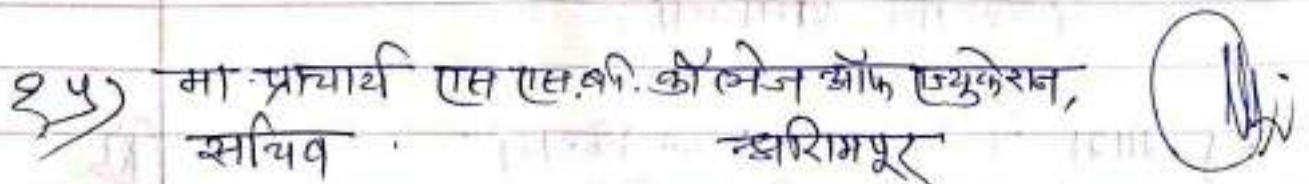 १५) मा. प्राचार्य एस एस.बी. कॉलेज ऑफ एज्युकेशन,
सचिव . श्रीरामपूर